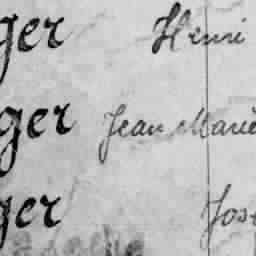 ger Henri
ger Jean Marie
ger Jos